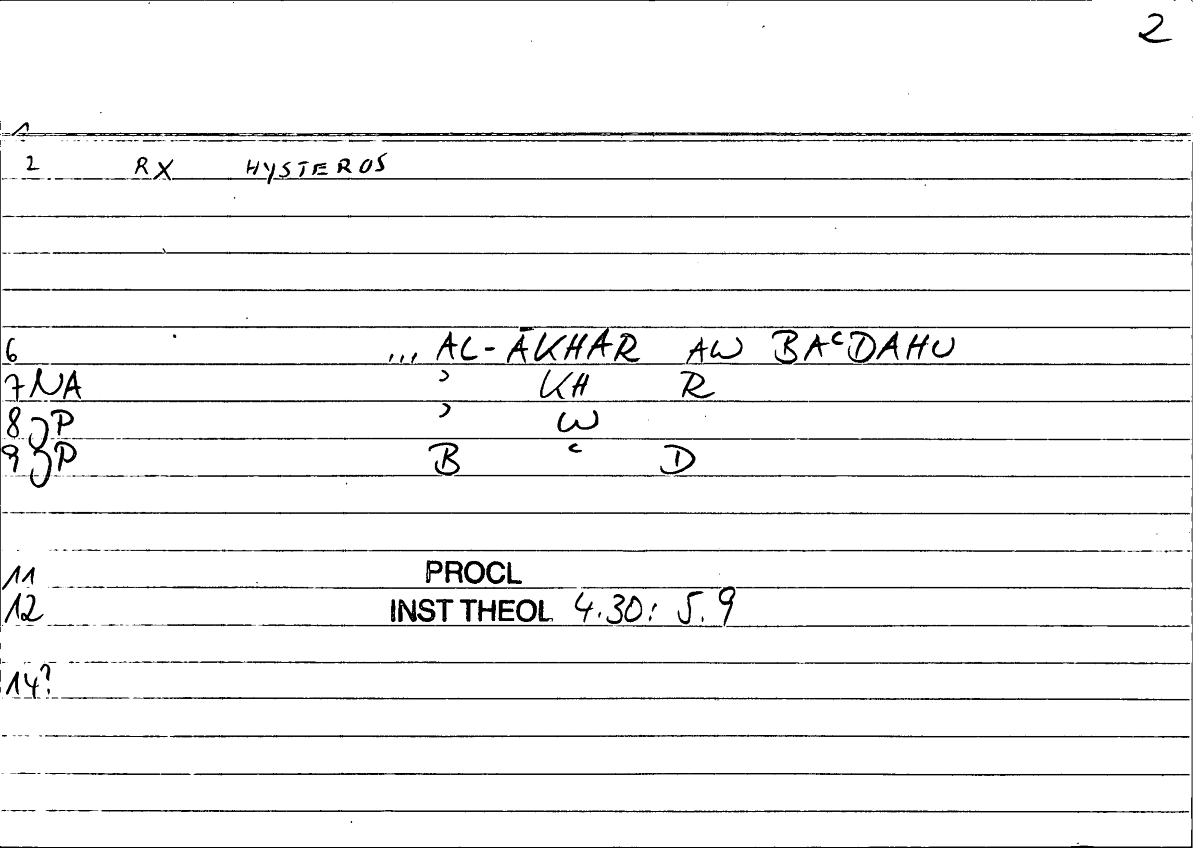 2
1
2 RX HYSTEROS
6 ... AL-ĀKHAR AW BAʿDAHU
7 NA ʾ KH R
8 JP ʾ W
9 JP B ʿ D
11 PROCL
12 INST THEOL 4.30: 5.9
14?